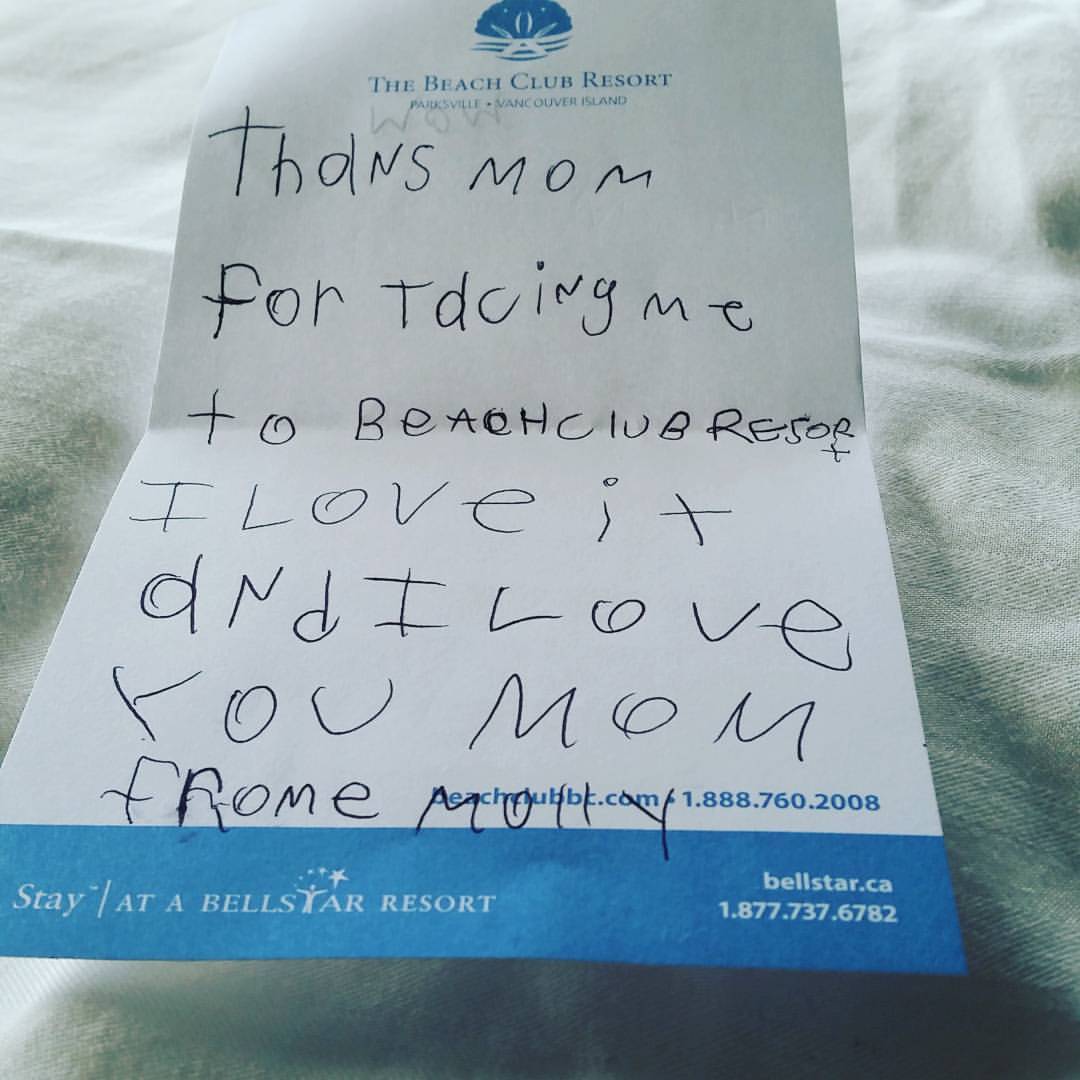 THE BEACH CLUB RESORT
PARKSVILLE • VANCOUVER ISLAND
WOW
ThaNS MOM
For Tacing me
to BeACHCLUB RESORt
I LOVe it
aNd I Love
YOU MOM
fROMe MOllY
beachclubbc.com • 1.888.760.2008
Stay™ | AT A BELLSTAR RESORT
bellstar.ca
1.877.737.6782